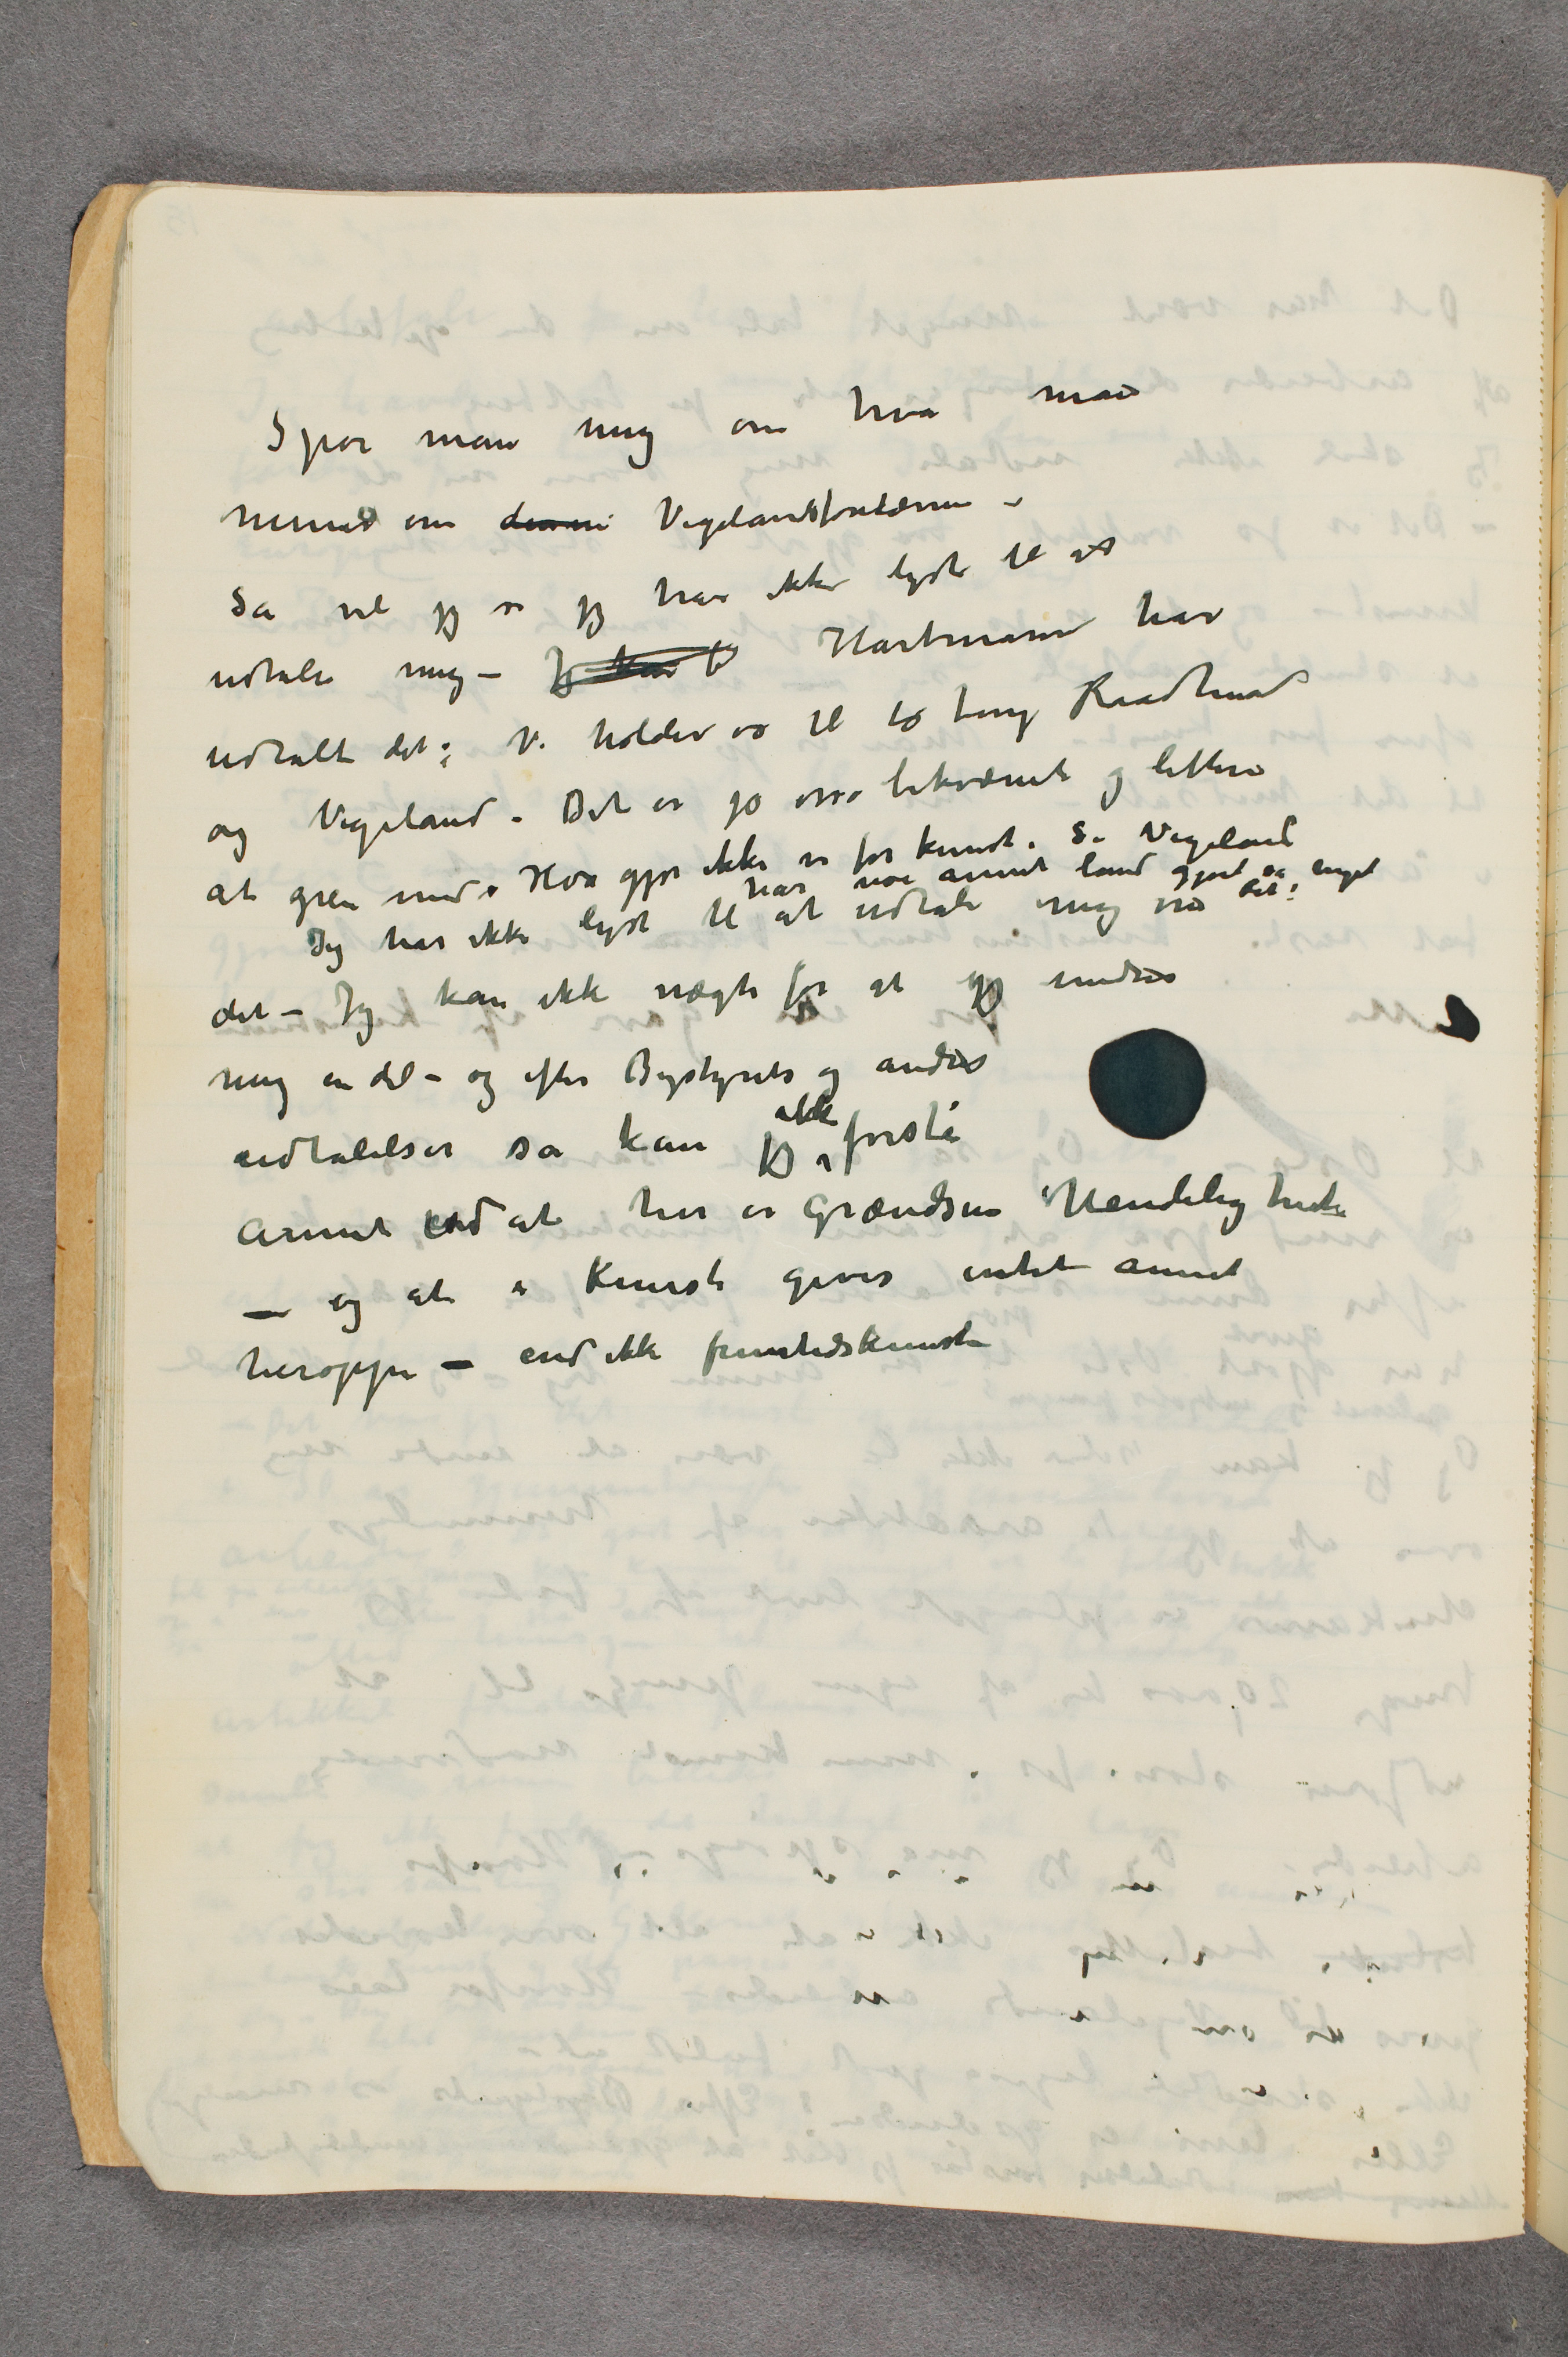 Spør man mig om hva man
mener om denne Vigelandsfontænen –
så vil jeg si jeg har ikke lyst til at
udtale mig – Jeg kan f Hartmann har
udtalt det: Vi holder os til to ting Raadhuset
og Vigeland. Det er jo osså bekvæmt og lettere
at greie med. Hva gjør ikke vi for kunst. Se Vigeland
har noe annet land gjort så meget
Jeg har ikke lyst til at udtale mig om det:
det – Jeg kan ikke nægte for at jeg undres
mig en del – og efter Bystyrets og andres
udtalelser så kan jeg ikke forstå
annet end at her er Grændsen Uendelighet
– og at i Kunst gives intet annet
heroppe – end ikke fremtidskunst